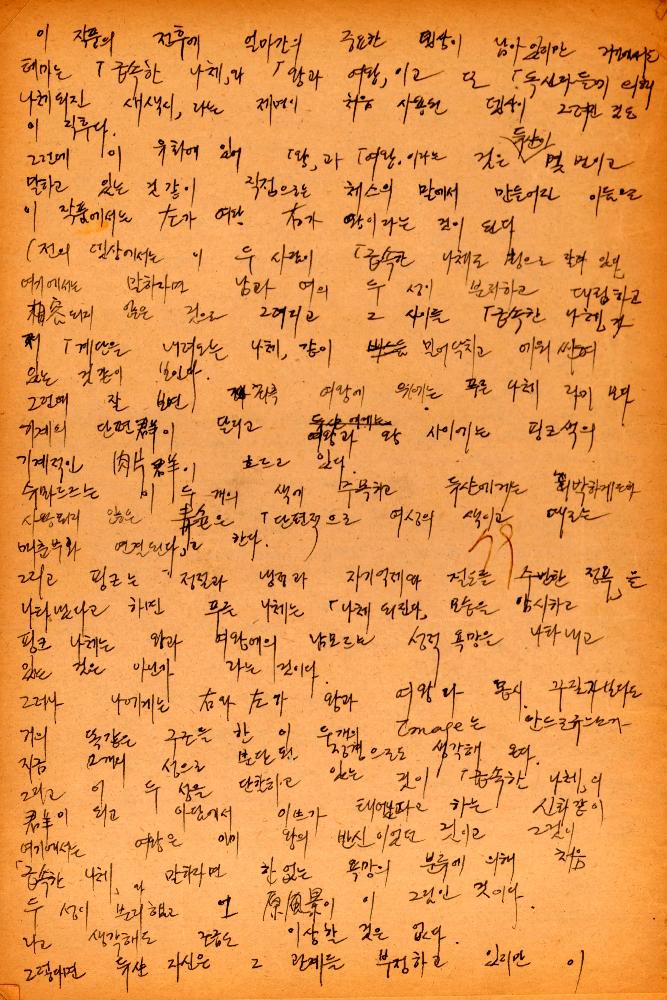 이 작품의 전후에 얼마간의 중요한 뎃상이 남아 있지만 거기에서는
테마는 「급속한 나체」와 「왕과 여왕」이고 또 「독신자들에 의해
나체 되진 새색시」라는 제명이 처음 사용된 뎃상이 그려진 것도
이 직후다.
그런데 이 유화에 있어 「왕」과 「여왕」이라는 것은 뒤샹이 몇 번이고
말하고 있는 것 같이 직접으로는 체스의 말에서 만들어진 이름으로
이 작품에서는 左가 여왕 右가 왕이라는 것이 된다
(전의 뎃상에서는 이 두 사람이 「급속한 나체로
여기에서는 말하자면 남과 여의 두 성이 분리하고 대립하고
相容되지 않은 것으로 그려지고 그 사이를 「급속한 나체」가
「계단을 내려오는 나체」같이 밀어닥치고 에워 싸여
있는 것 같이 보인다.
그런데 잘 보면 좌측 여왕에 위에는 푸른 나체 라기 보다
기계의 단편 君羊이 달리고 여왕과 왕 사이에는 핑크색의
기계적인 肉片 君羊이 흐르고 있다.
슈바르츠는 이 두 개의 색에 주목하고 뒤샹에게는 희박하게 밖에
사용되지 않은 靑色은 「단편적으로 여성의 색이고 때로는
매춘부와 연결된다」고 한다.
그리고 핑크는 「정절과 냉정과 자기억제와 전도를 수반한 정복」을
나타낸다고 하면 푸른 나체는 「나체 되진다」모습을 암시하고
핑크 나체는 왕과 여왕에의 남모르는 성적 욕망을 나타내고
있는 것은 아닌가 라는 것이다.
그러나 나에게는 右와 左가 왕과 여왕과 동시
거의 똑같은 구조를 한 이 두개의 Image는 안드로규노스가
지금 두개의 성으로 분단된 장경으로도 생각해 온다.
그리고 이 두 성을 단절하고 있는 것이 「급속한 나체」의
君羊이 되고 아담에서 이브가 태어났다고 하는 신화같이
여기에서는 여왕은 이미 왕의 반신이었던 것이고 그것이
「급속한 나체」와 말하자면 한없는 욕망의 분류에 의해 처음
두 성이 분리했고 原風景이 이 그림인 것이다.
라고 생각해도 조금도 이상할 것은 없다.
그렇다면 뒤샹 자신은 그 관계를 부정하고 있지만 이